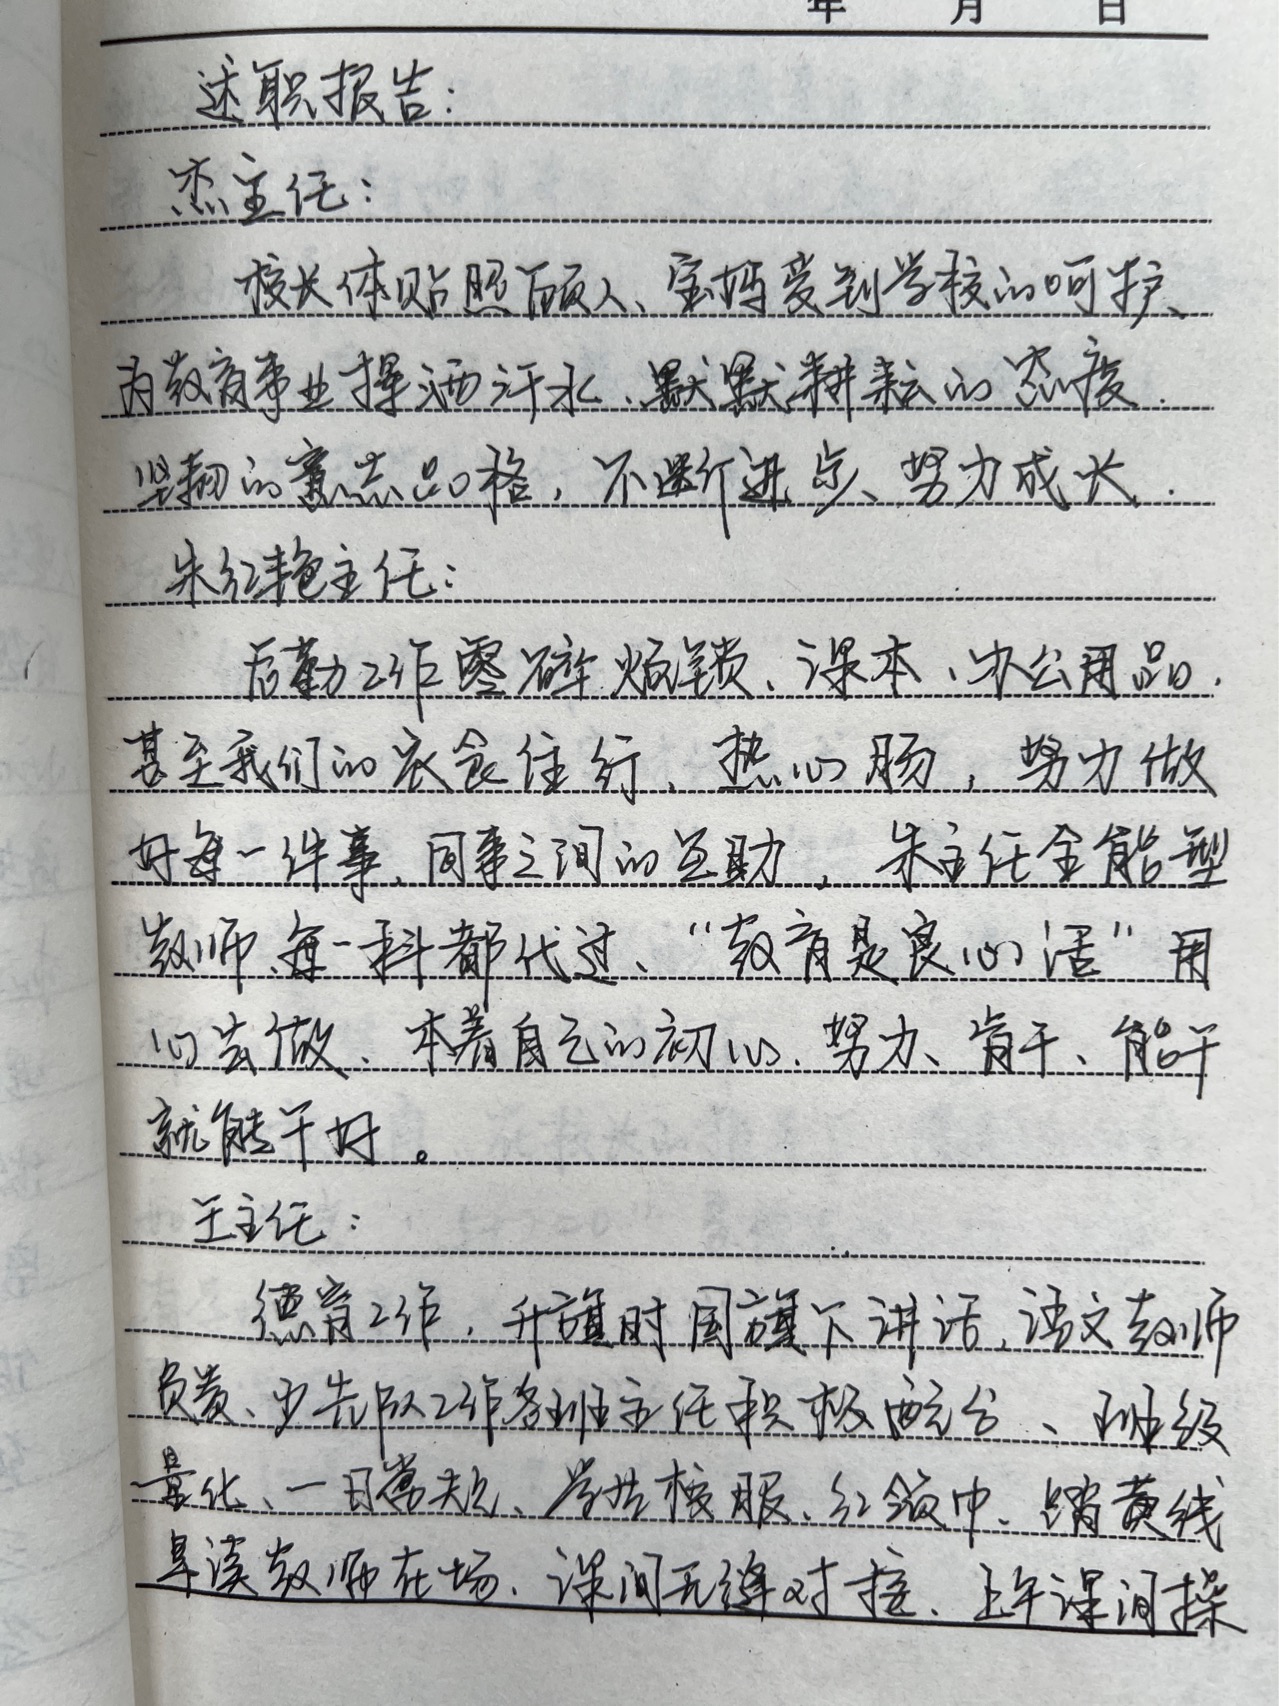 年 月 日
述职报告:
杰主任:
校长体贴照顾人、宝妈受到学校的呵护、
为教育事业挥洒汗水、默默耕耘的态度.
坚韧的意志品格, 不断进步、努力成长.
朱红艳主任:
后勤工作零碎烦锁、课本、办公用品.
甚至我们的衣食住行、热心肠, 努力做
好每一件事、同事之间的互助, 朱主任全能型
教师、每一科都代过、“教育是良心活”用
心去做、本着自己的初心、努力、肯干、能干
就能干好。
王主任:
德育工作, 升旗时国旗下讲话, 语文教师
负责、少先队工作各班主任积极配合、班级
量化、一日常规、学生校服、红领巾、踏黄线
早读教师在场、课间无缝对接、上午课间操